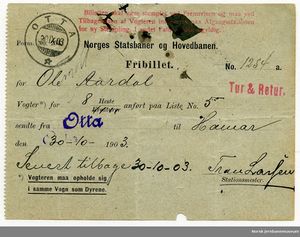 Billetten skal være stemplet ved Fremreisen og maa ved
Tilbagereisen af Vogteren
for ny Stempling. I andet Fald er den ugyldig.
OTTA
30 IX 03
Form.
Norges Statsbaner og Hovedbanen.
Fribillet.
No. 1284
for Ole Aardal
Tur & Retur.
Vogter*) for 8 Heste anført paa Liste No. 5
sendte fra Otta til Hamar
den 30/10 1903
Senest tilbage 30-10-03. Fran Larsen
Stationsmester.
*) Vogteren maa opholde sig
i samme Vogn som Dyrene.
Norsk Jernbanemuseum